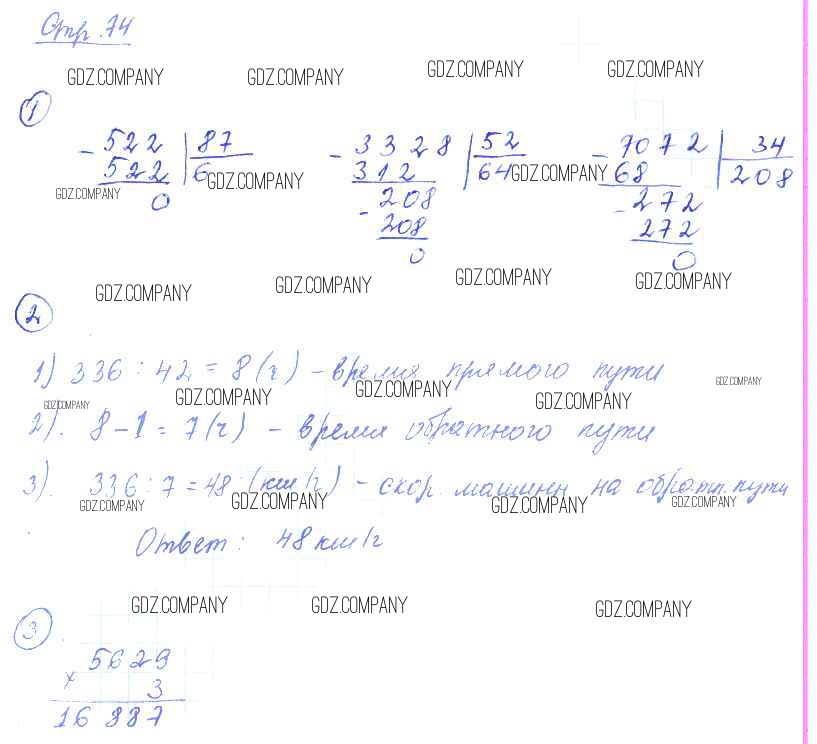 Стр. 74
GDZ.COMPANY GDZ.COMPANY GDZ.COMPANY GDZ.COMPANY
1
- 522 | 87 - 3328 | 52 - 7072 | 34
522 | 6 GDZ.COMPANY 312 | 64 GDZ.COMPANY 68 | 208
GDZ.COMPANY 0 - 208 - 272
208 272
0 0
GDZ.COMPANY GDZ.COMPANY GDZ.COMPANY GDZ.COMPANY
2
1) 336 : 42 = 8 (ч) - время прямого пути
GDZ.COMPANY GDZ.COMPANY GDZ.COMPANY GDZ.COMPANY GDZ.COMPANY
2). 8 - 1 = 7 (ч) - время обратного пути
3). 336 : 7 = 48 (км/ч) - скор. машины на обратн. пути
GDZ.COMPANY GDZ.COMPANY GDZ.COMPANY GDZ.COMPANY
Ответ: 48 км/ч
GDZ.COMPANY GDZ.COMPANY GDZ.COMPANY
3
5629
× 3
16 887